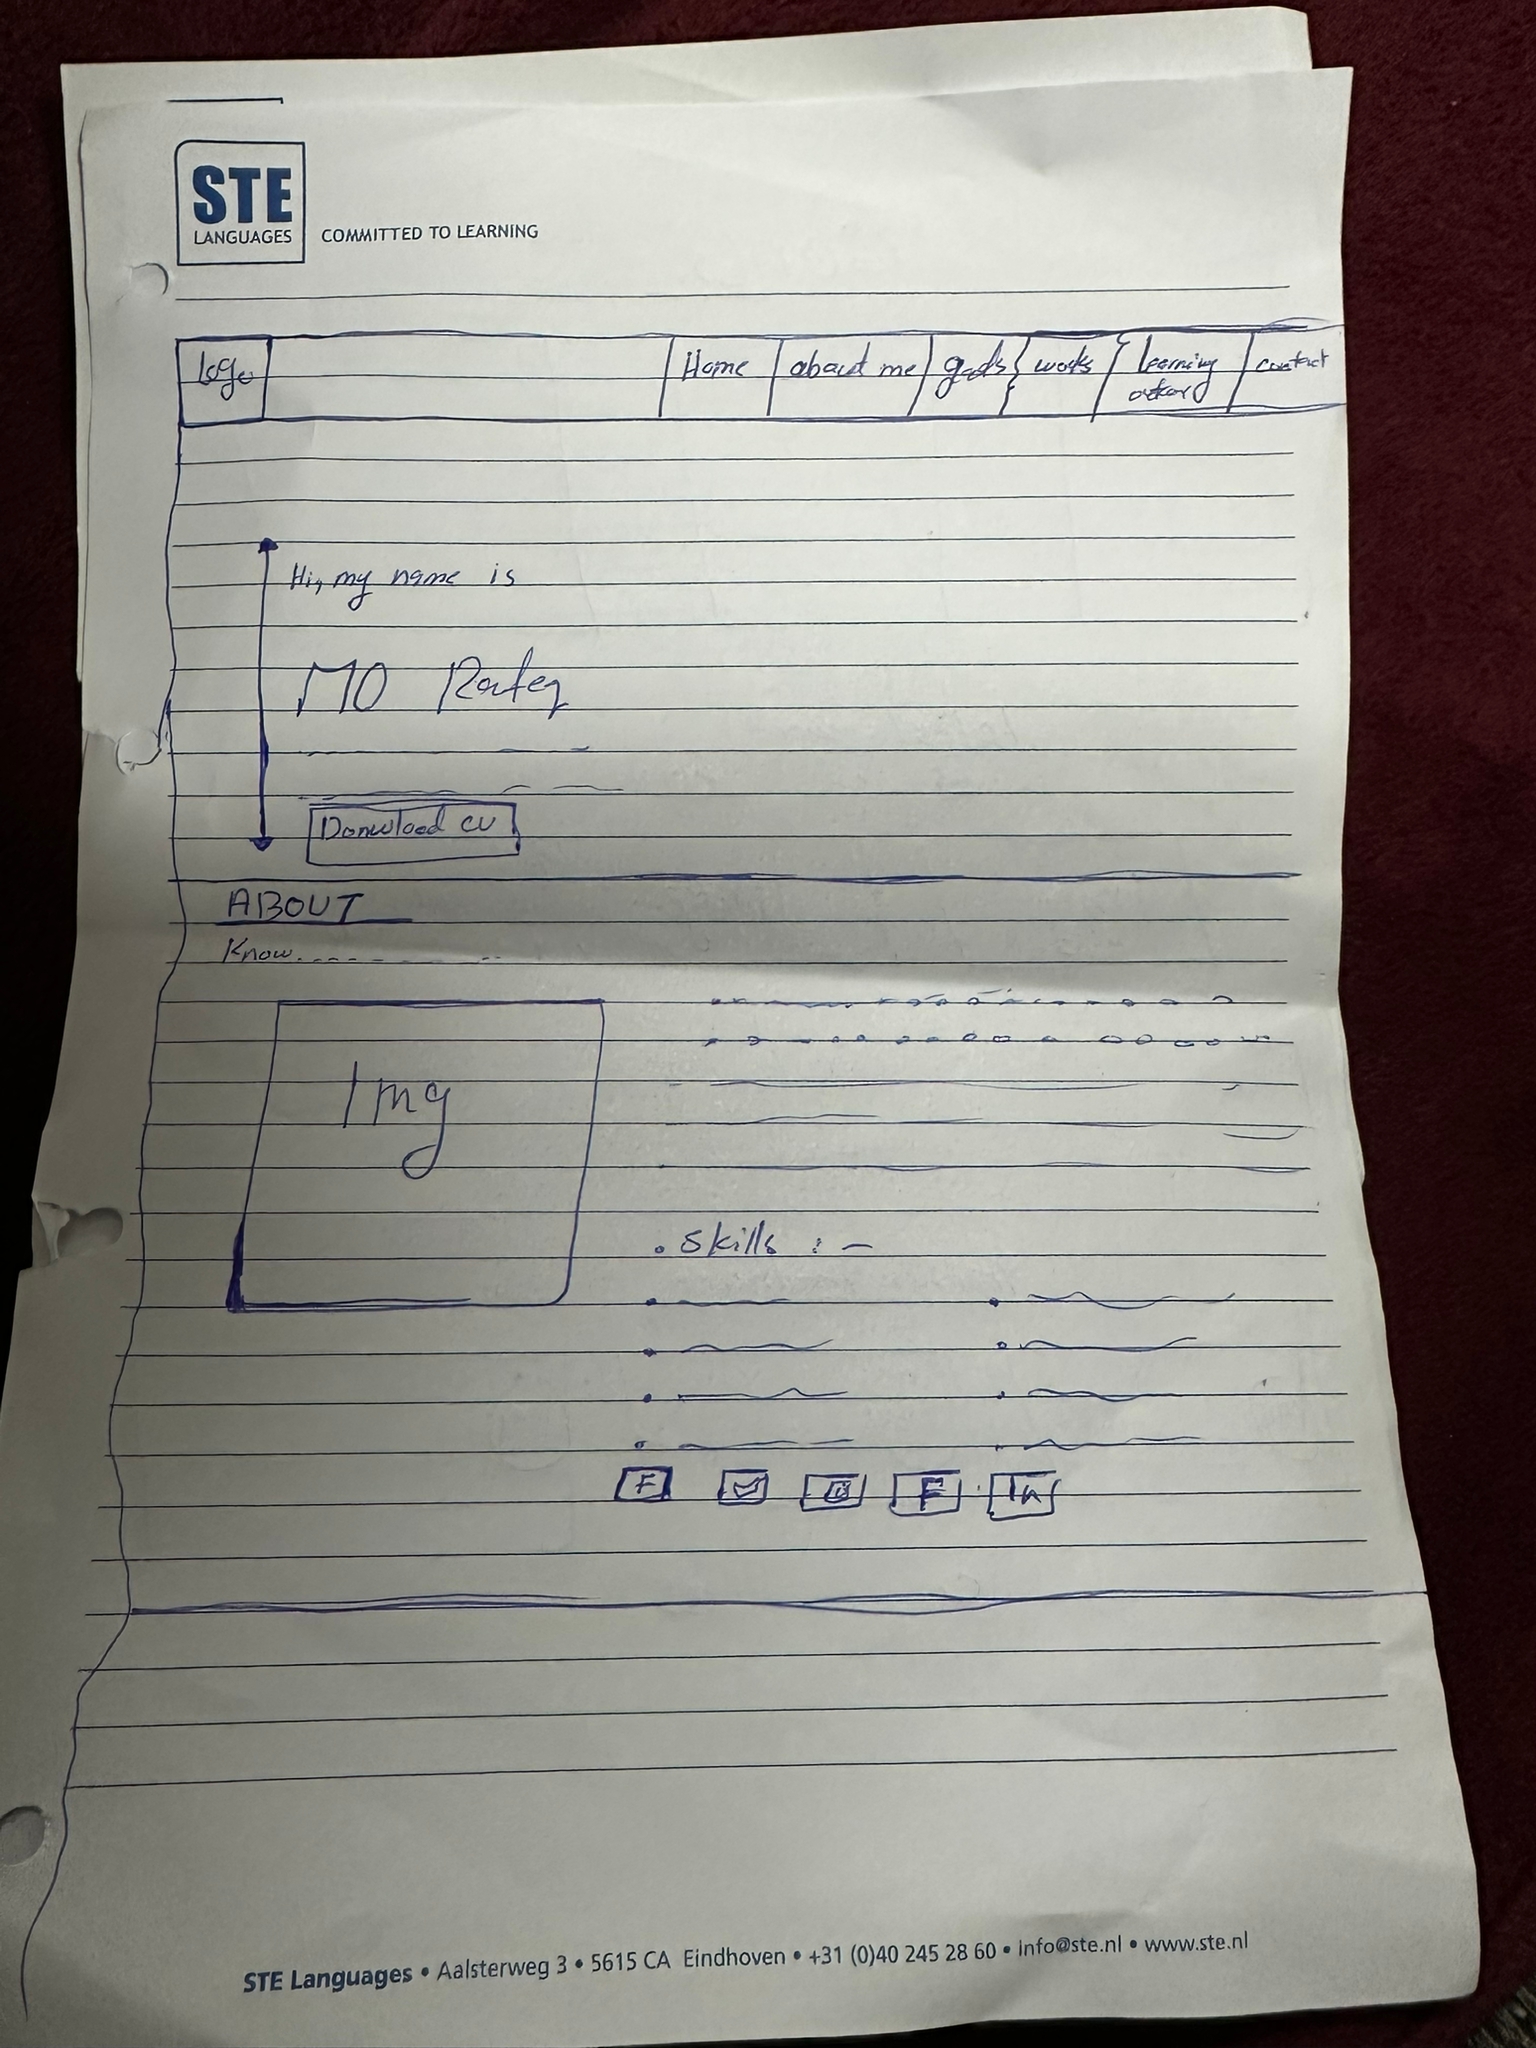 STE
LANGUAGES COMMITTED TO LEARNING
Logo Home about me goals works learning contact
Hi, my name is
MO
Donwload cv
ABOUT
Know
Img
Skills : -
F F In
STE Languages • Aalsterweg 3 • 5615 CA Eindhoven • +31 (0)40 245 28 60 • info@ste.nl • www.ste.nl